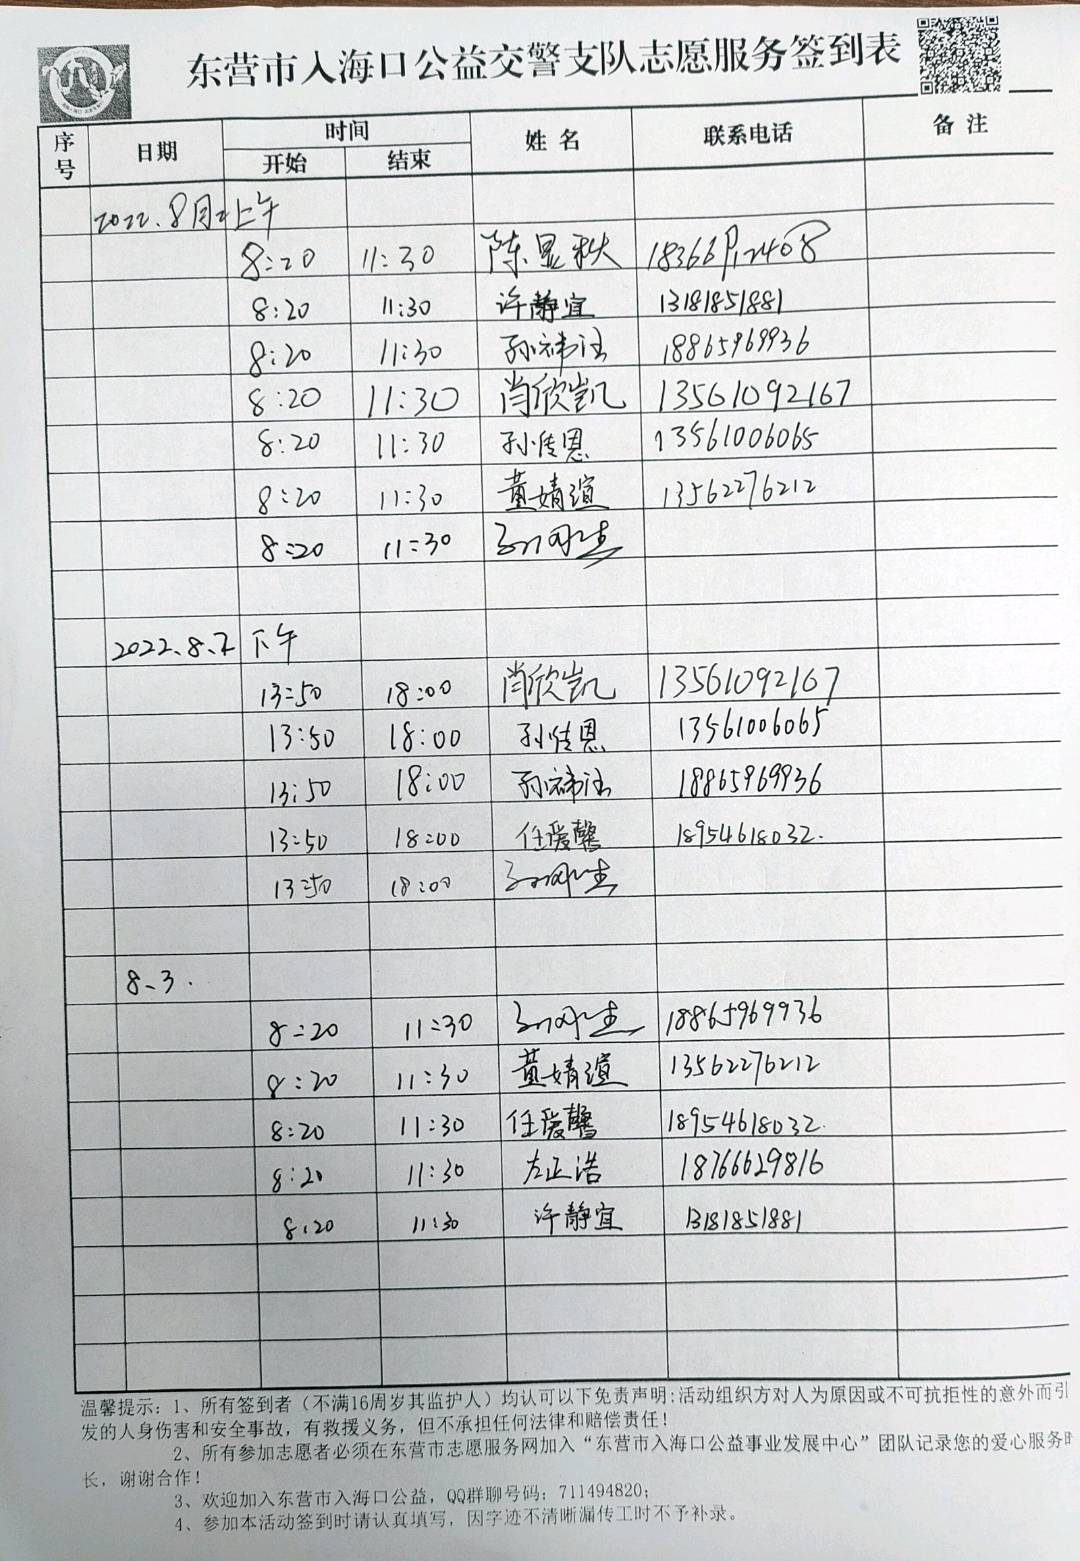 东营市入海口公益交警支队志愿服务签到表
序号 日期 时间 姓名 联系电话 备注
开始 结束
2022.8月2上午
8:20 11:30 陈显秋
8:20 11:30 许静宜 13181851881
8:20 11:30 孙祎泓 18865969936
8:20 11:30 肖欣凯 13561092167
8:20 11:30 孙传恩 13561006065
8:20 11:30 黄婧瑄 13562276212
8:20 11:30
2022.8.2 下午
13:50 18:00 肖欣凯 13561092167
13:50 18:00 孙传恩 13561006065
13:50 18:00 孙祎泓 18865969936
13:50 18:00 任爱馨 18954618032.
13:50 18:00
8.3.
8:20 11:30 18865969936
8:20 11:30 黄婧瑄 13562276212
8:20 11:30 任爱馨 18954618032.
8:20 11:30 左正浩 18766629816
8:20 11:30 许静宜 13181851881
温馨提示：1、所有签到者（不满16周岁其监护人）均认可以下免责声明:活动组织方对人为原因或不可抗拒性的意外而引
发的人身伤害和安全事故，有救援义务，但不承担任何法律和赔偿责任！
2、所有参加志愿者必须在东营市志愿服务网加入“东营市入海口公益事业发展中心”团队记录您的爱心服务时
长，谢谢合作！
3、欢迎加入东营市入海口公益，QQ群聊号码：711494820；
4、参加本活动签到时请认真填写，因字迹不清晰漏传工时不予补录。